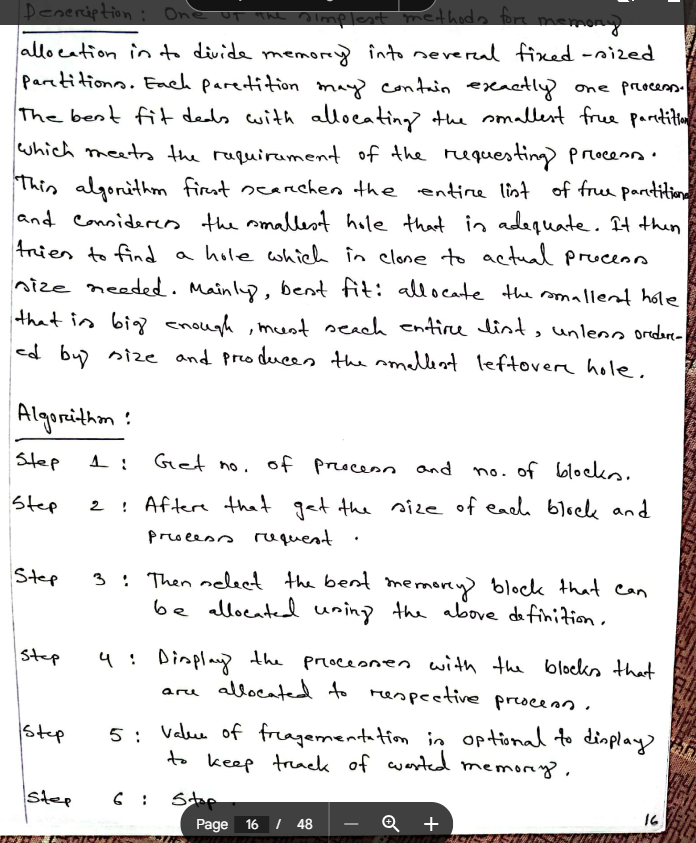 Description: One of the simplest methods for memory
allocation is to divide memory into several fixed-sized
partitions. Each partition may contain exactly one process.
The best fit deals with allocating the smallest free partition
which meets the requirement of the requesting process.
This algorithm first searches the entire list of free partitions
and considers the smallest hole that is adequate. It then
tries to find a hole which is close to actual process
size needed. Mainly, best fit: allocate the smallest hole
that is big enough, must seach entire list, unless order-
ed by size and produces the smallest leftover hole.
Algorithm:
Step 1: Get no. of process and no. of blocks.
Step 2: After that get the size of each block and
process request.
Step 3: Then select the best memory block that can
be allocated using the above definition.
Step 4: Display the processes with the blocks that
are allocated to respective process.
Step 5: Value of fragementation is optional to display
to keep track of wasted memory.
Step 6: Stop.
16
Page 16 / 48 — +